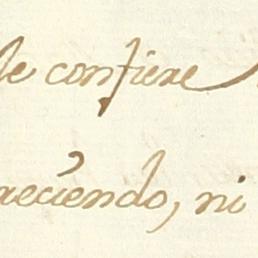 le confiere
reciendo, ni